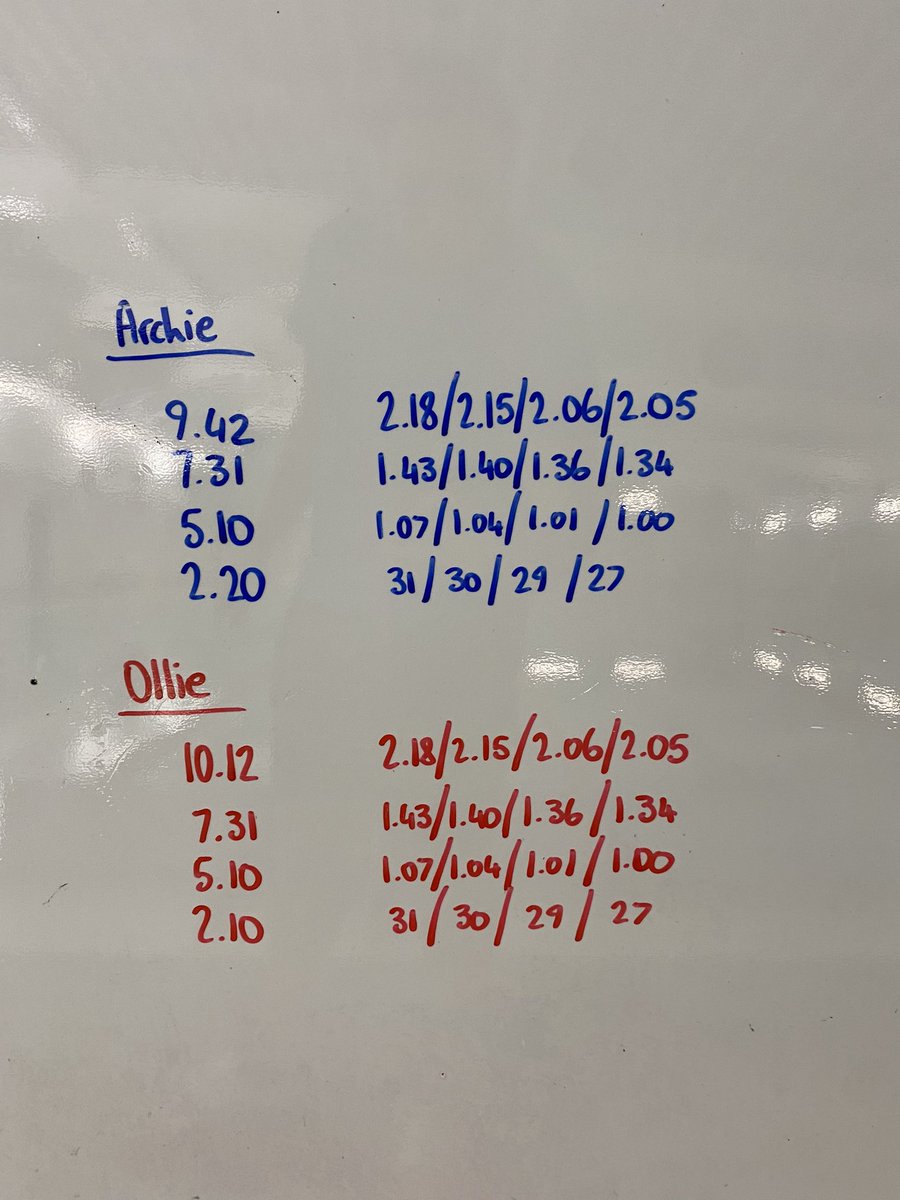 Archie
9.42 2.18/2.15/2.06/2.05
7.31 1.43/1.40/1.36/1.34
5.10 1.07/1.04/1.01/1.00
2.20 31/30/29/27
Ollie
10.12 2.18/2.15/2.06/2.05
7.31 1.43/1.40/1.36/1.34
5.10 1.07/1.04/1.01/1.00
2.10 31/30/29/27